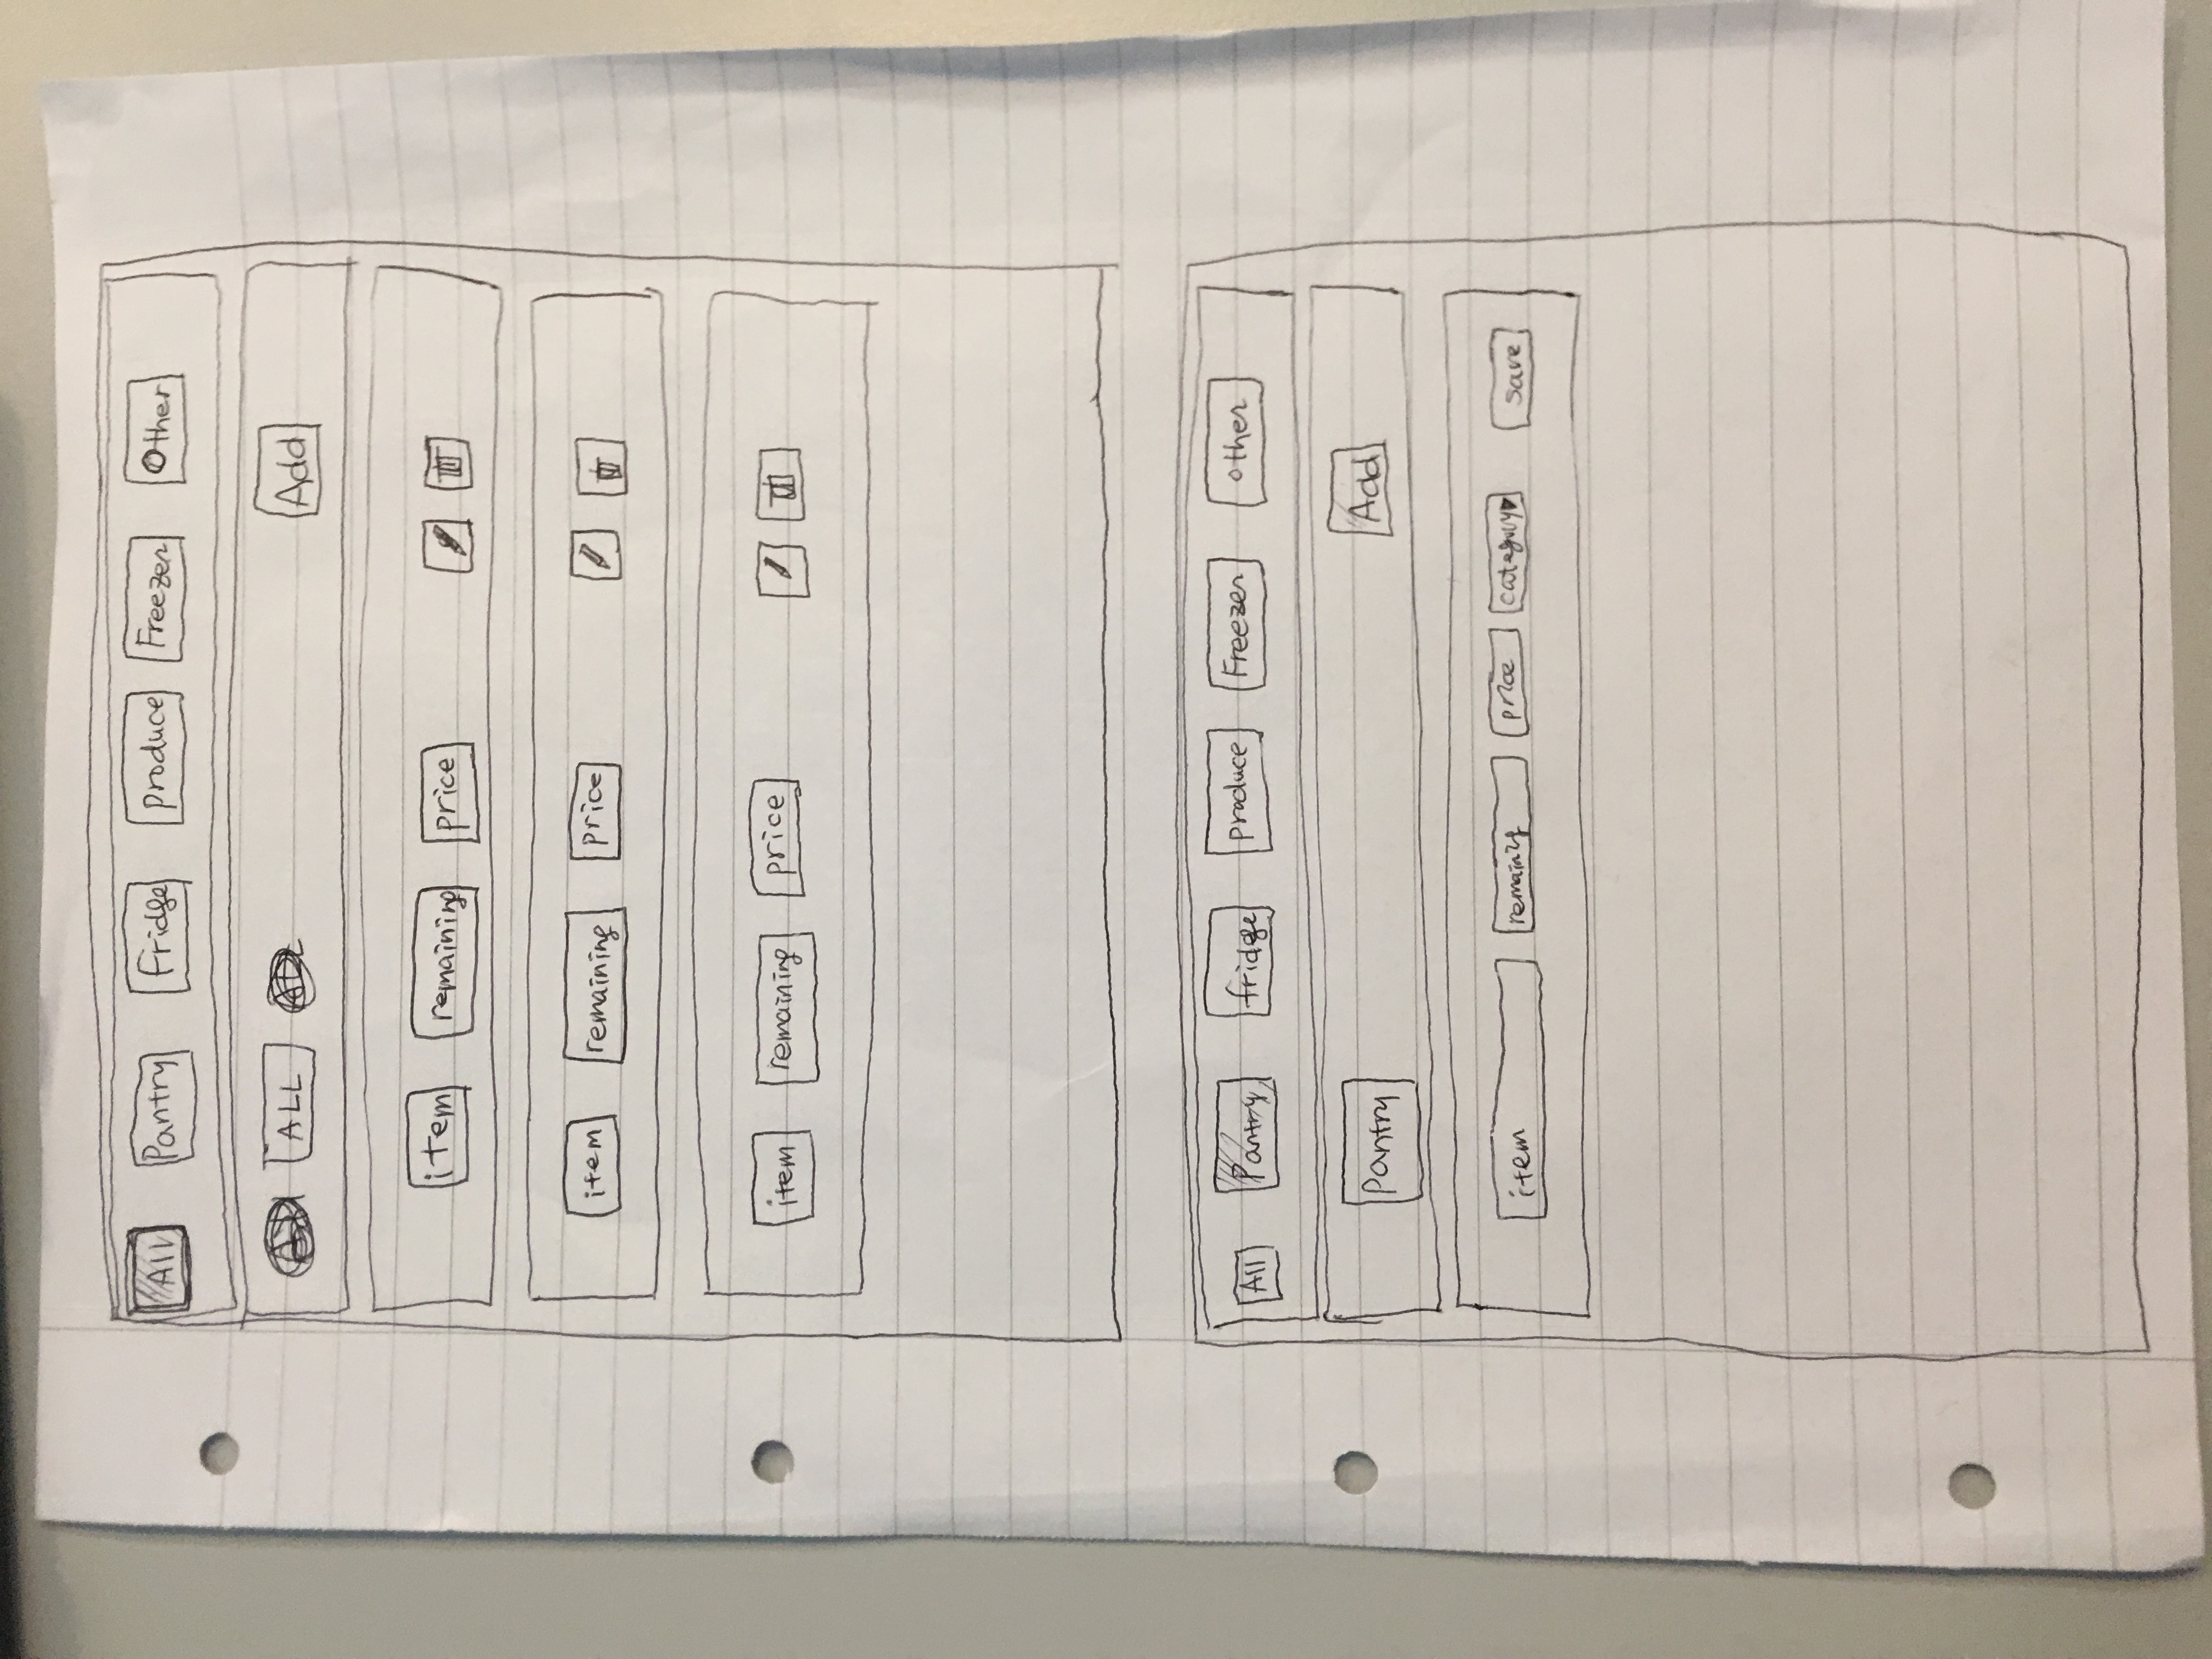 All Pantry Fridge produce Freezer Other
ALL Add
item remaining price
item remaining price
item remaining price
All Pantry fridge produce Freezer other
Pantry Add
item price category save